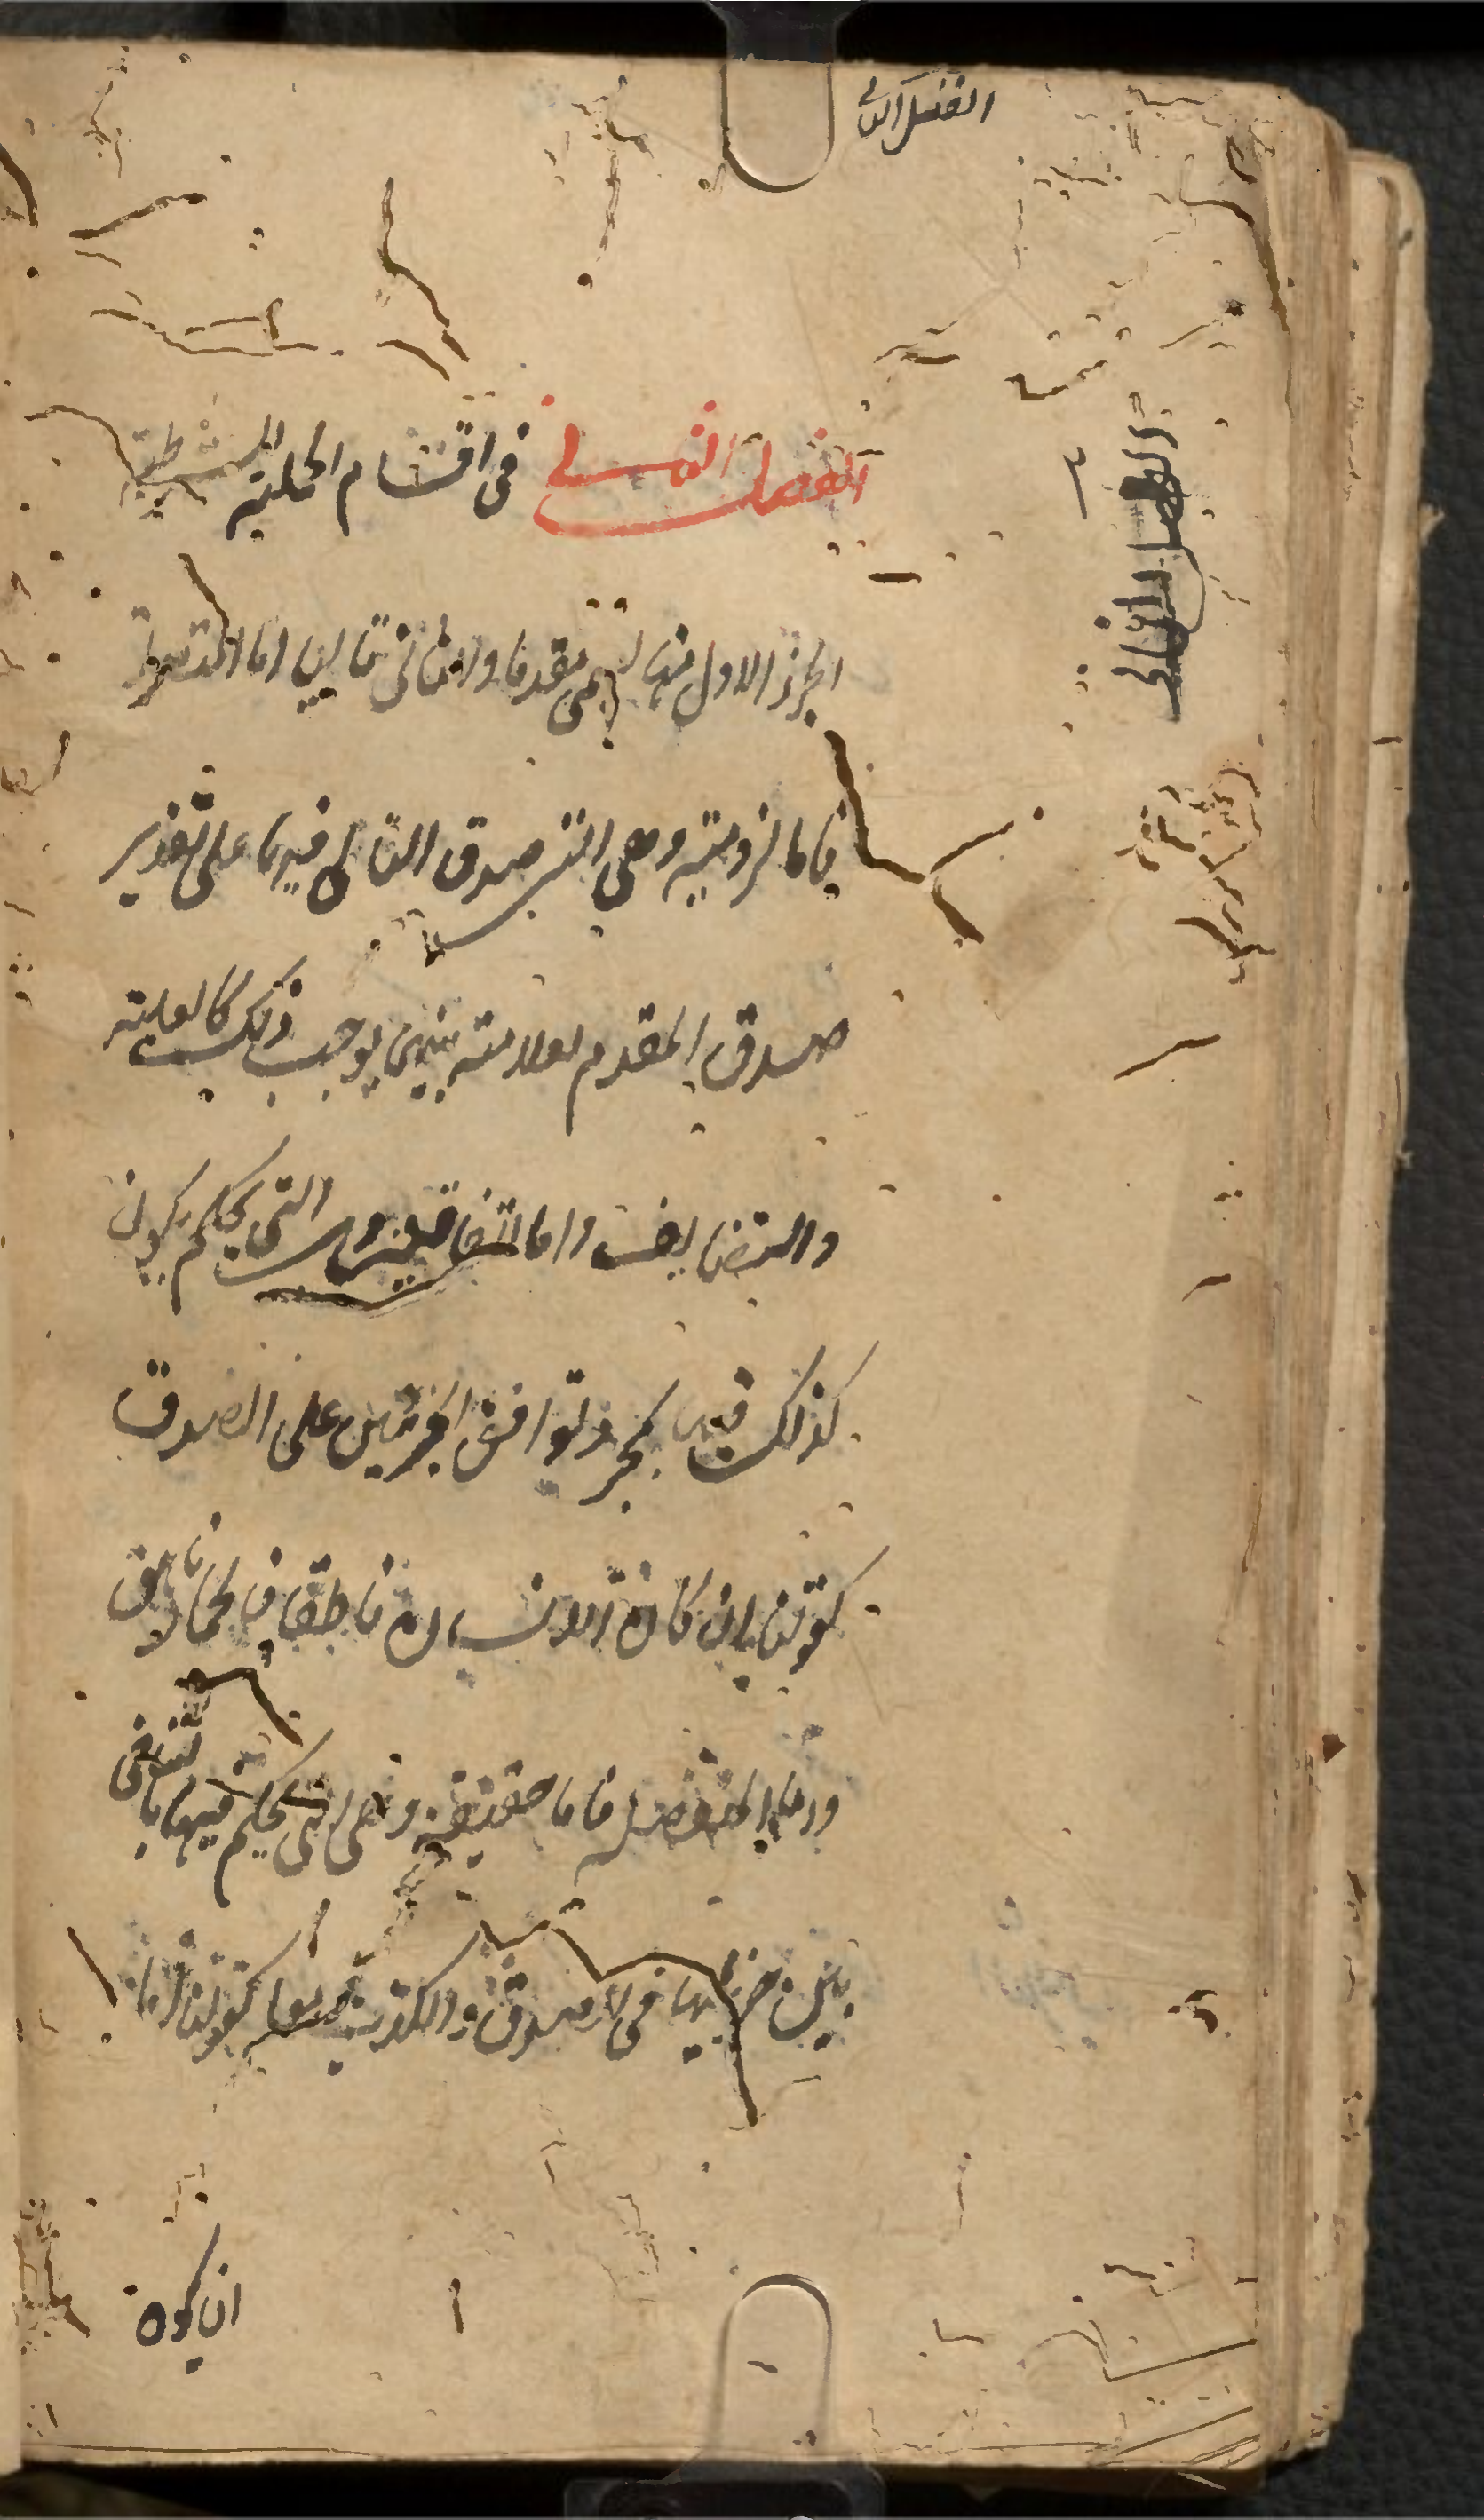 الفصل الثانى
الفصل الثانى فى اقسام الحملية الشرطية
الجزء الاول منها يسمى مقدما والثانى تاليا اما المتصلة
فاما لزومية وهى التى صدق التالى فيها على تقدير
صدق المقدم لعلاقة بينهما يوجب ذلك كالعلية
والتضايف واما اتفاقية وهى التى يحكم يكون
كذلك فيها بمجرد توافق الجزئين على الصدق
كقولنا ان كان الانسان ناطقا فالحمار ناهق
واما المنفصلة فاما حقيقية وهى التى يحكم فيها بالتنافى
بين جزئيها فى الصدق والكذب معا كقولنا اما
ان يكون
الفصل الثانى